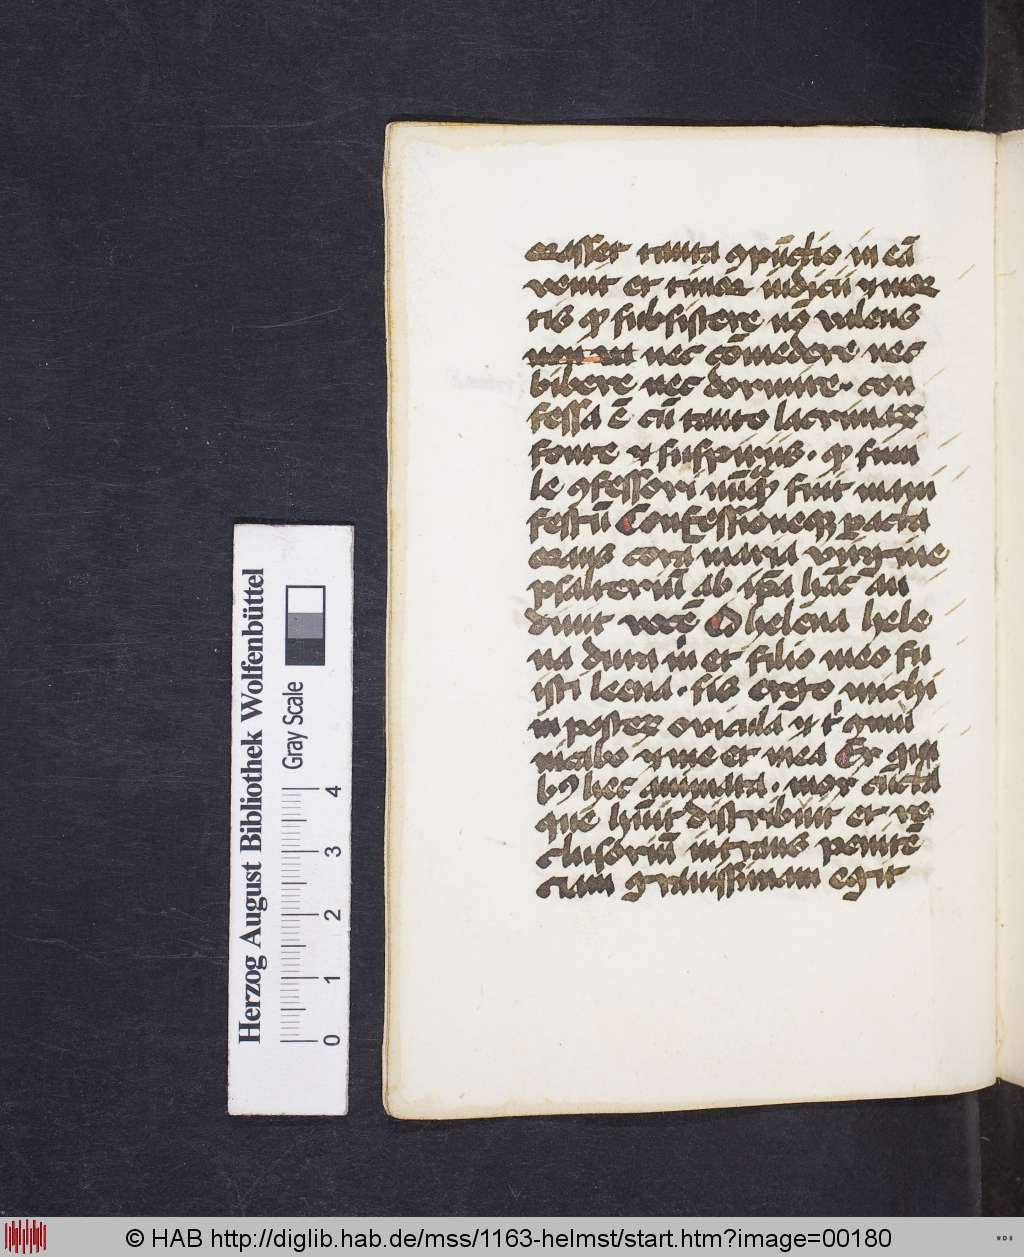 orasset tanta ꝯpūctio in eā
venit et timor iudicii ⁊ mor
tis qͥ subsistere nō valens
non va nec cōmedere nec
bibere nec dormire · con
fessa ē cū tanto lacrimaꝝ
fonte ⁊ suspiriis · qͥ simi
le ꝯfessori nūqͣ fuit mani
festū Confessioneqꝫ ꝑacta
orans corā maria virgine
psalteriū ab ip̄a hāc au
diuit vocē O helena hele
na dura m̄ et filio meo fu
isti leena · sis ergo michi
in posterꝝ ouicula ⁊ t̄
nicabo ⁊ me et mea Ex qui
bꝰ hec animata · mox cūcta
que hūit distribuit et re
clusoriū intrans penitē
ciam grauissimam egit
Herzog August Bibliothek Wolfenbüttel
Gray Scale
0 1 2 3 4
© HAB http://diglib.hab.de/mss/1163-helmst/start.htm?image=00180